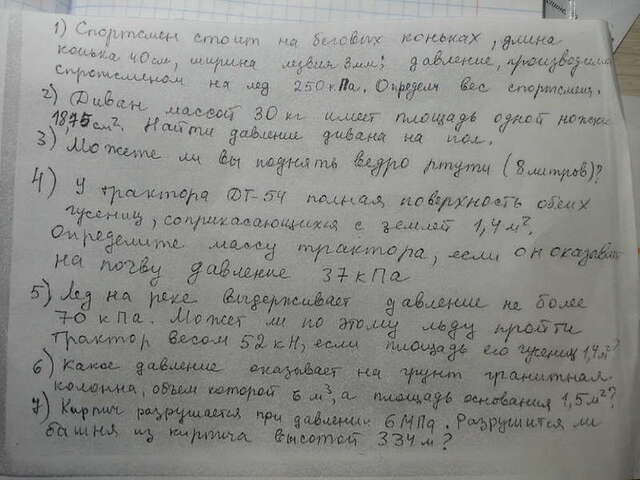 1) Спортсмен стоит на беговых коньках, длина
конька 40 см, ширина лезвия 3 мм; давление, производимо
спротсменом на лед 250 кПа. Определи вес спортсмена.
2) Диван массой 30 кг имеет площадь одной ножки
18,75 см². Найти давление дивана на пол.
3) Можете ли вы поднять ведро ртути (8 литров)?
4) У трактора ДТ-54 полная поверхность обеих
гусениц, соприкасающихся с землёй 1,4 м².
Определите массу трактора, если он оказывает
на почву давление 37 кПа
5) Лед на реке выдерживает давление не более
70 кПа. Может ли по этому льду пройти
трактор весом 52 кН, если площадь его гусениц 1,4 м²?
6) Какое давление оказывает на грунт гранитная
колонна, объем которой 6 м³, а площадь основания 1,5 м²?
7) Кирпич разрушается при давлении 6 МПа. Разрушится ли
башня из кирпича высотой 334 м?